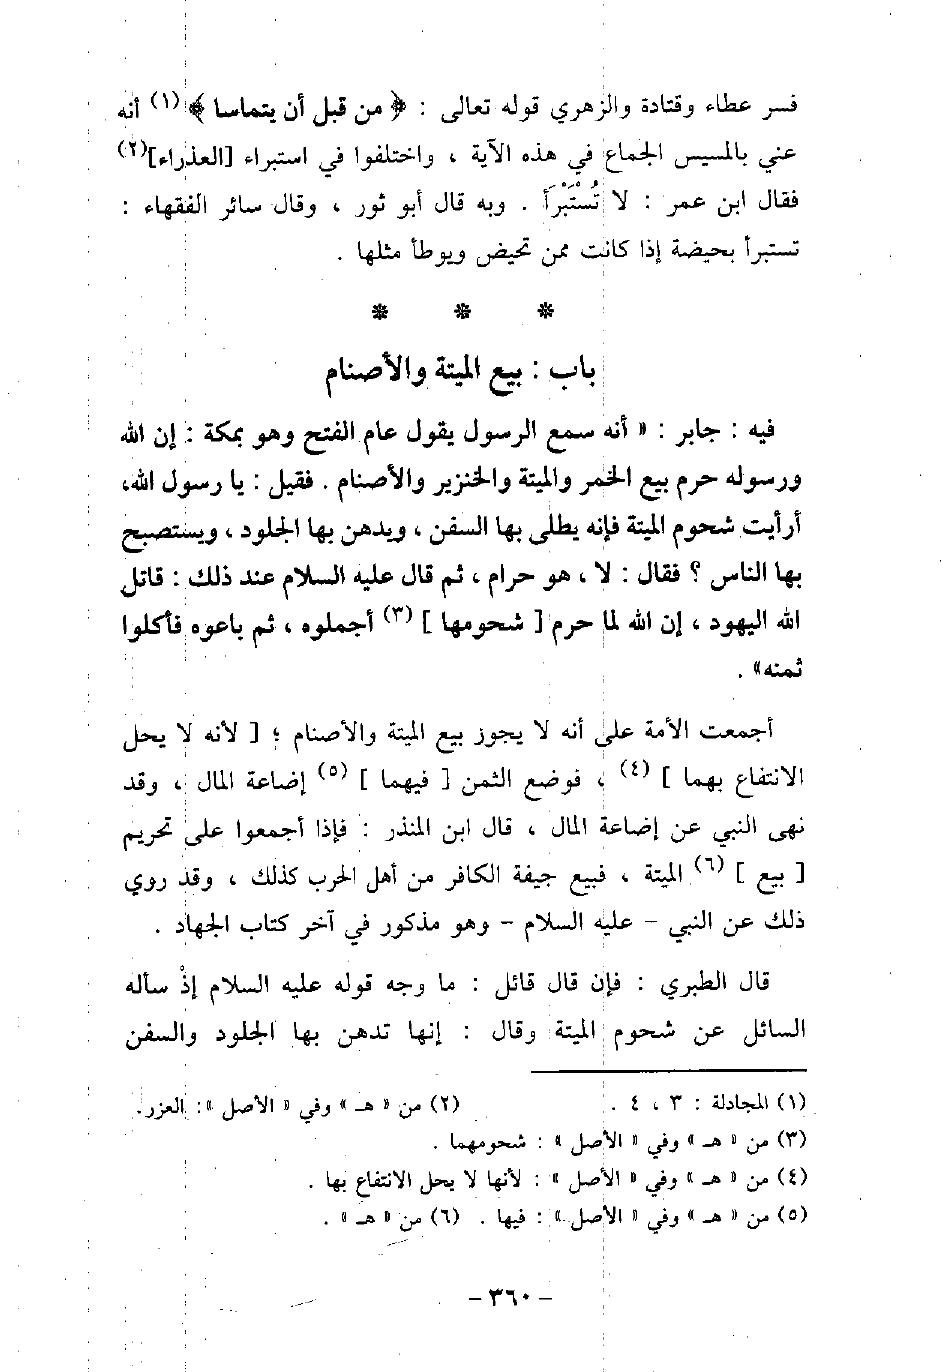 فسر عطاء وقتادة والزهري قوله تعالى : ﴿ من قبل أن يتماسا ﴾ (١) أنه
عني بالمسيس الجماع في هذه الآية ، واختلفوا في استبراء [العذراء](٢)
فقال ابن عمر : لا تُسْتَبْرَأ . وبه قال أبو ثور ، وقال سائر الفقهاء :
تستبرأ بحيضة إذا كانت ممن تحيض ويوطأ مثلها .
* * *
باب : بيع الميتة والأصنام
فيه : جابر : « أنه سمع الرسول يقول عام الفتح وهو بمكة : إن الله
ورسوله حرم بيع الخمر والميتة والخنزير والأصنام . فقيل : يا رسول الله،
أرأيت شحوم الميتة فإنه يطلى بها السفن ، ويدهن بها الجلود ، ويستصبح
بها الناس ؟ فقال : لا ، هو حرام ، ثم قال عليه السلام عند ذلك : قاتل
الله اليهود ، إن الله لما حرم [ شحومها ] (٣) أجملوه ، ثم باعوه فأكلوا
ثمنه» .
أجمعت الأمة على أنه لا يجوز بيع الميتة والأصنام ؛ [ لأنه لا يحل
الانتفاع بهما ] (٤) ، فوضع الثمن [ فيهما ] (٥) إضاعة المال ، وقد
نهى النبي عن إضاعة المال ، قال ابن المنذر : فإذا أجمعوا على تحريم
[ بيع ] (٦) الميتة ، فبيع جيفة الكافر من أهل الحرب كذلك ، وقد روي
ذلك عن النبي - عليه السلام - وهو مذكور في آخر كتاب الجهاد .
قال الطبري : فإن قال قائل : ما وجه قوله عليه السلام إذْ سأله
السائل عن شحوم الميتة وقال : إنها تدهن بها الجلود والسفن
(١) المجادلة : ٣ ، ٤ . (٢) من « هـ » وفي « الأصل »: العزر.
(٣) من « هـ » وفي « الأصل » : شحومهما .
(٤) من « هـ » وفي « الأصل » : لأنها لا يحل الانتفاع بها .
(٥) من « هـ » وفي « الأصل » : فيها . (٦) من « هـ » .
- ٣٦٠ -